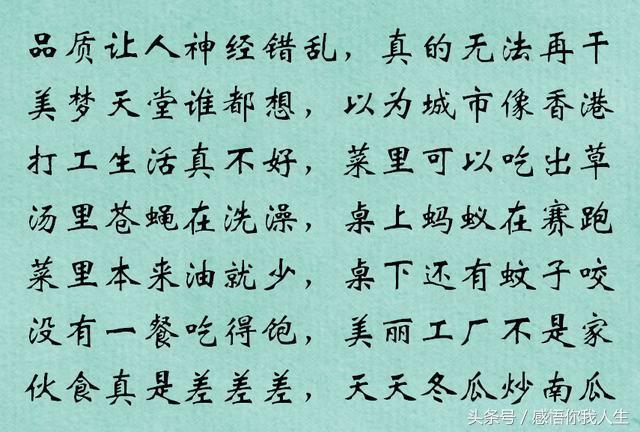 品质让人神经错乱，真的无法再干
美梦天堂谁都想，以为城市像香港
打工生活真不好，菜里可以吃出草
汤里苍蝇在洗澡，桌上蚂蚁在赛跑
菜里本来油就少，桌下还有蚊子咬
没有一餐吃得饱，美丽工厂不是家
伙食真是差差差，天天冬瓜炒南瓜
头条号／感悟你我人生